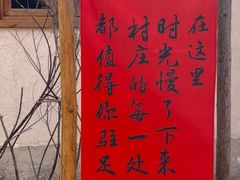 在这里
时光慢了下来
村庄的每一处
都值得你驻足